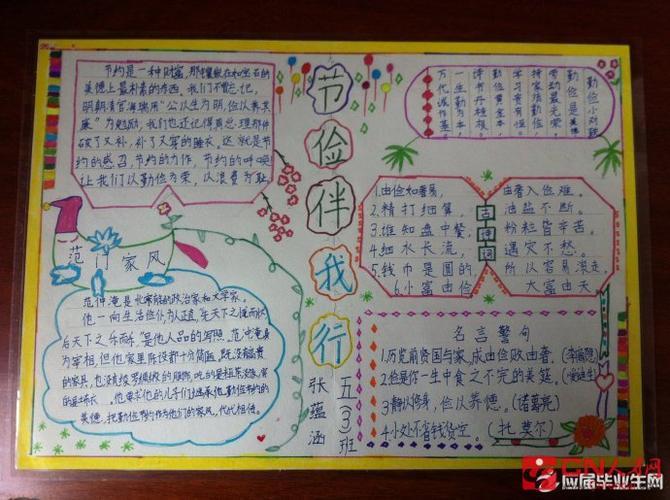 节俭伴我行
节约是一种财富,那
美德上最朴素的东西,我们不能忘记,
明朝清官海瑞用“公以生为明,俭以养其
廉”为勉励,我们也还记得周总理那件
破了又补,补了又穿的睡衣。这就是节
约的感召,节约的力作,节约的呼唤
让我们以勤俭为荣,以浪费为耻
勤俭小对联
勤俭是美德
劳动最光荣
持家
学习贵有恒
勤俭黄金本,
诗书丹桂根。
一生勤为本,
万代诚作基。
范门家风
范仲淹是北宋的政治家和文学家。
他一向生活俭朴,为人正直,先天下之忧而忧
后天下之乐而乐”是他人品的写照。范仲淹身
为宰相,但他家里陈设都十分简陋,既没有
的家具,也没有
他勤俭节约的
美德,把勤俭节约作为他们的家风,代代相传。
古诗词
1.由俭如奢易, 由奢入俭难。
2.精打细算, 油盐不断。
3.谁知盘中餐, 粒粒皆辛苦。
4.细水长流, 遇灾不愁。
5.钱币是圆的, 所以容易滚走,
6.小富由俭, 大富由天。
名言警句
1.历览前贤国与家,成由俭败由奢。(李商隐)
2.俭是你一生中食之不完的美筵。
3静以修身,俭以养德。(诸葛亮)
4.小处不省钱袋空。(托莫尔)
五(3)班
张蕴涵
应届毕业生网